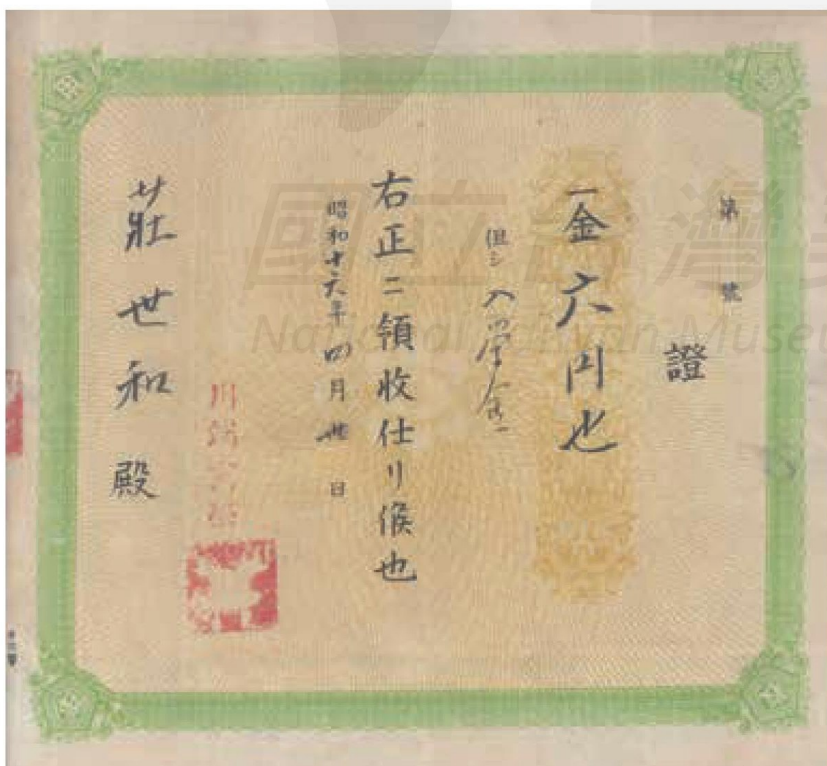 第 號
證
一金 六円也
但シ 入學金
右正ニ領收仕リ候也
昭和十六年 四月 廿 日
莊世和 殿
國立台灣美
National Taiwan Museu